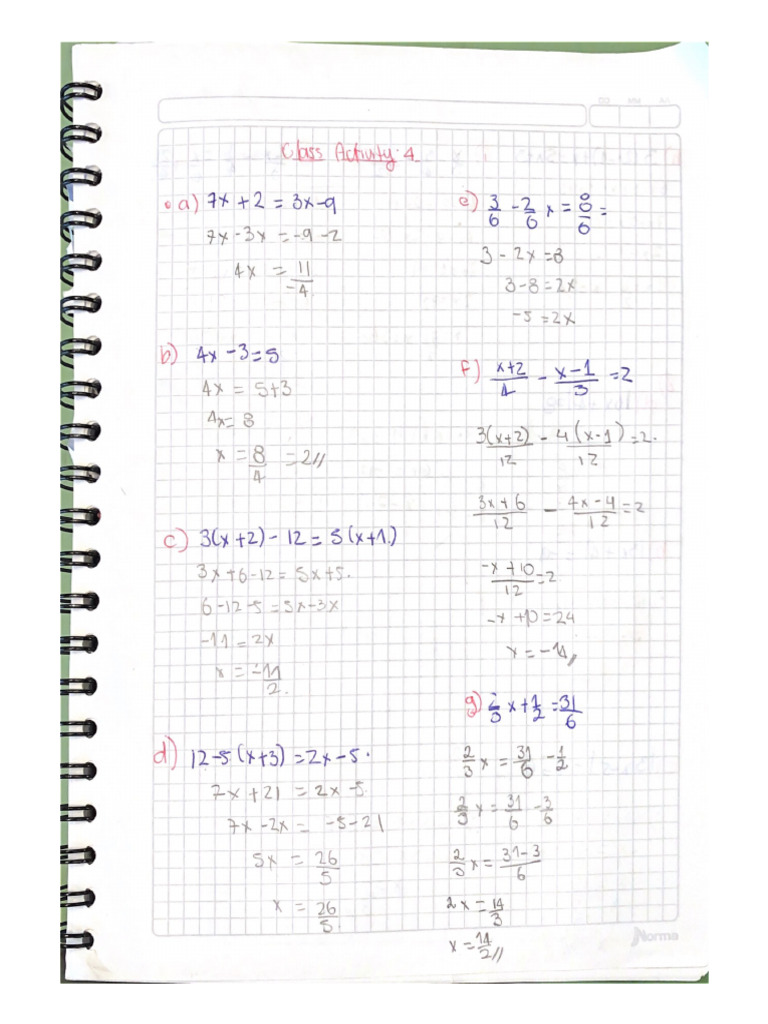 DD MM AA
Class Activity 4
a) 7x + 2 = 3x - 9
7x - 3x = -9 - 2
4x = 11/-4
b) 4x - 3 = 5
4x = 5 + 3
4x = 8
x = 8/4 = 2//
c) 3(x + 2) - 12 = 5(x + 1)
3x + 6 - 12 = 5x + 5.
6 - 12 - 5 = 5x - 3x
-11 = 2x
x = -11/2.
d) 12 - 5(x + 3) = 2x - 5.
7x + 21 = 2x - 5
7x - 2x = -5 - 21
5x = 26/5
x = 26/5.
e) 3/6 - 2/6 x = 8/6 =
3 - 2x = 8
3 - 8 = 2x
-5 = 2x
f) x+2/4 - x-1/3 = 2
3(x+2)/12 - 4(x-1)/12 = 2.
3x+6/12 - 4x-4/12 = 2
-x+10/12 = 2
-x + 10 = 24
x = -14//
g) 2/3 x + 1/2 = 31/6
2/3 x = 31/6 - 1/2
2/3 x = 31/6 - 3/6
2/3 x = 31-3/6
2x = 14/3
x = 14/2//
Norma